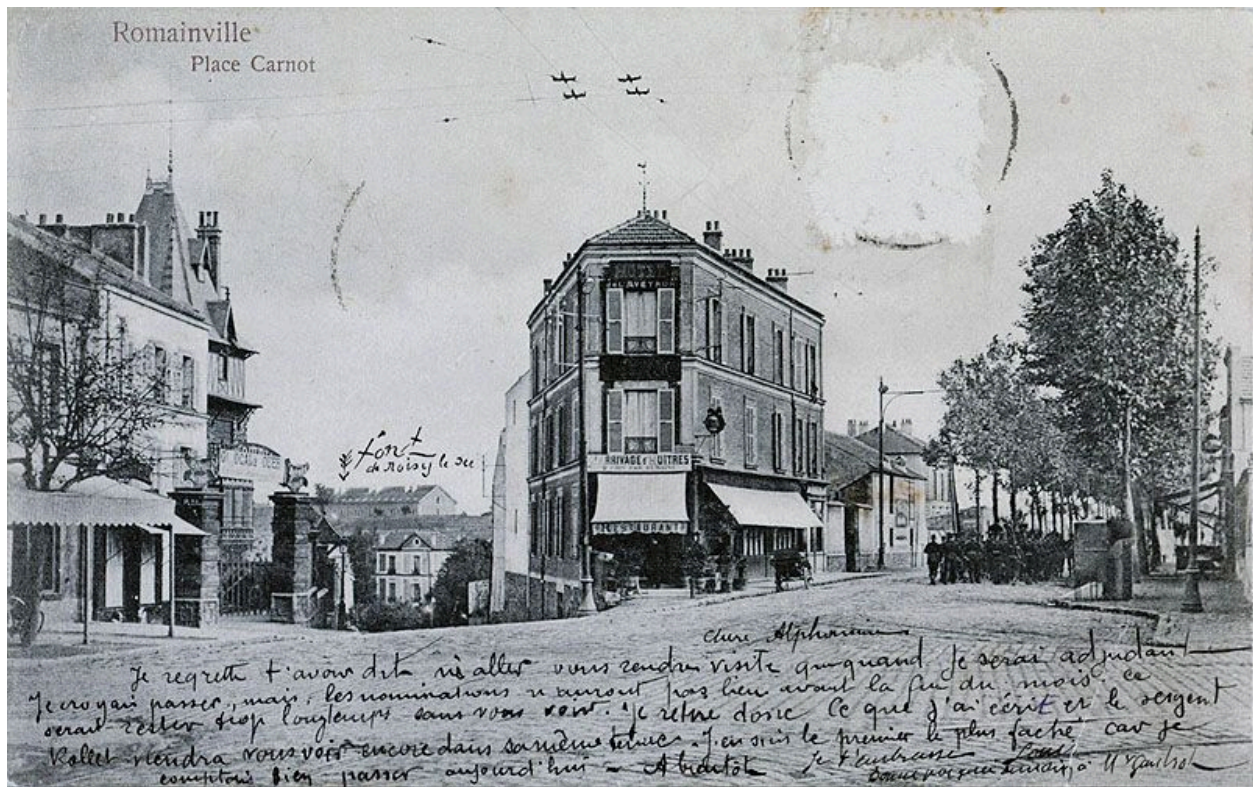 Romainville
Place Carnot
HOTEL
DE L'AVEYRON
ARRIVAGE D'HUITRES
RESTAURANT
fort
de Noisy le Sec
Chère Alphonsine
Je regrette t'avoir dit n'aller vous rendre visite que quand je serai adjudant
Je croyais passer, mais, les nominations n'auront pas lieu avant la fin du mois ce
serait rester trop longtemps sans vous voir. Je retire donc ce que j'ai écrit et le sergent
Rollet viendra vous voir encore dans sa même tenue. J'en suis le premier le plus faché car je
comptais bien passer aujourd'hui - A bientot Je t'embrasse